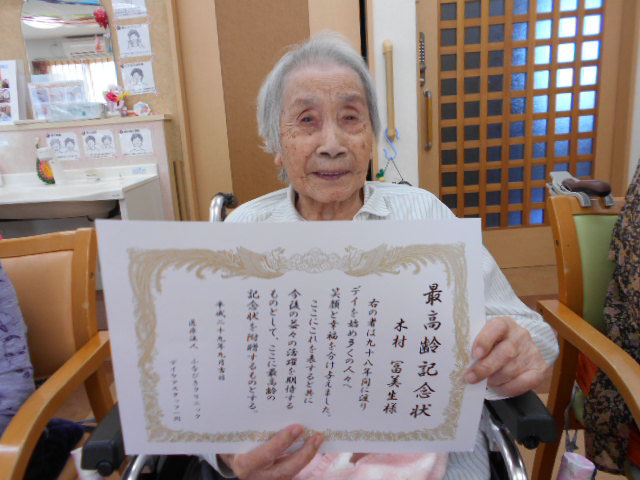 最高齢記念状
木村 冨美生様
右の者は九十八年間に渡り
デイを始め多くの人々へ
笑顔と幸福を分け与えました。
ここにこれを表すると共に
今後の益々の活躍を期待する
ものとして、ここに最高齢の
記念状を附贈するものとする。
平成二十九年九月吉日
医療法人
デイケアスタッフ一同